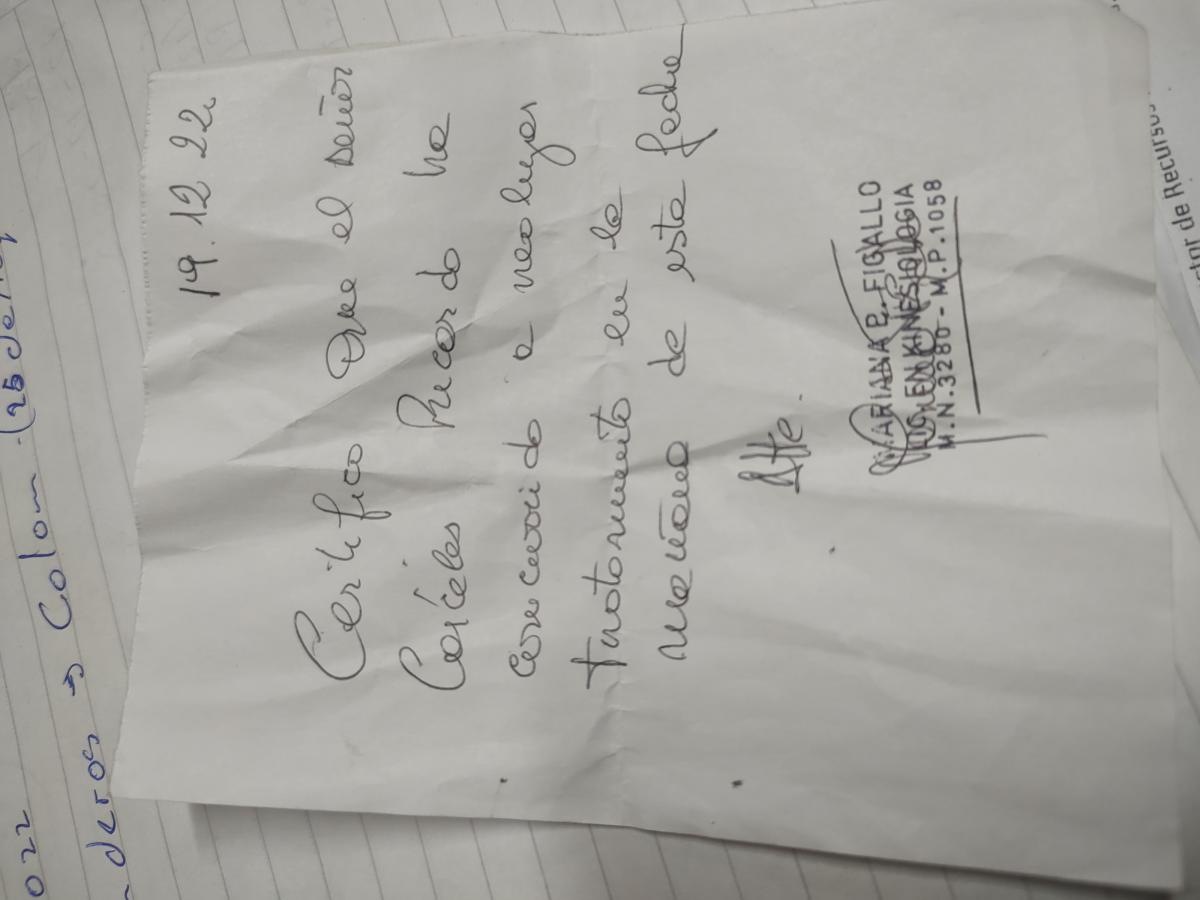 19.12.22
Certifico que el señor
Carceles Ricardo ha
concurrido a realizar
tratamiento en la
mañana de esta fecha
Atte.
MARIANA P. FIGALLO
LIC. EN KINESIOLOGIA
M.N.3280 - M.P.1058
022
deros → Colom
de Recursos